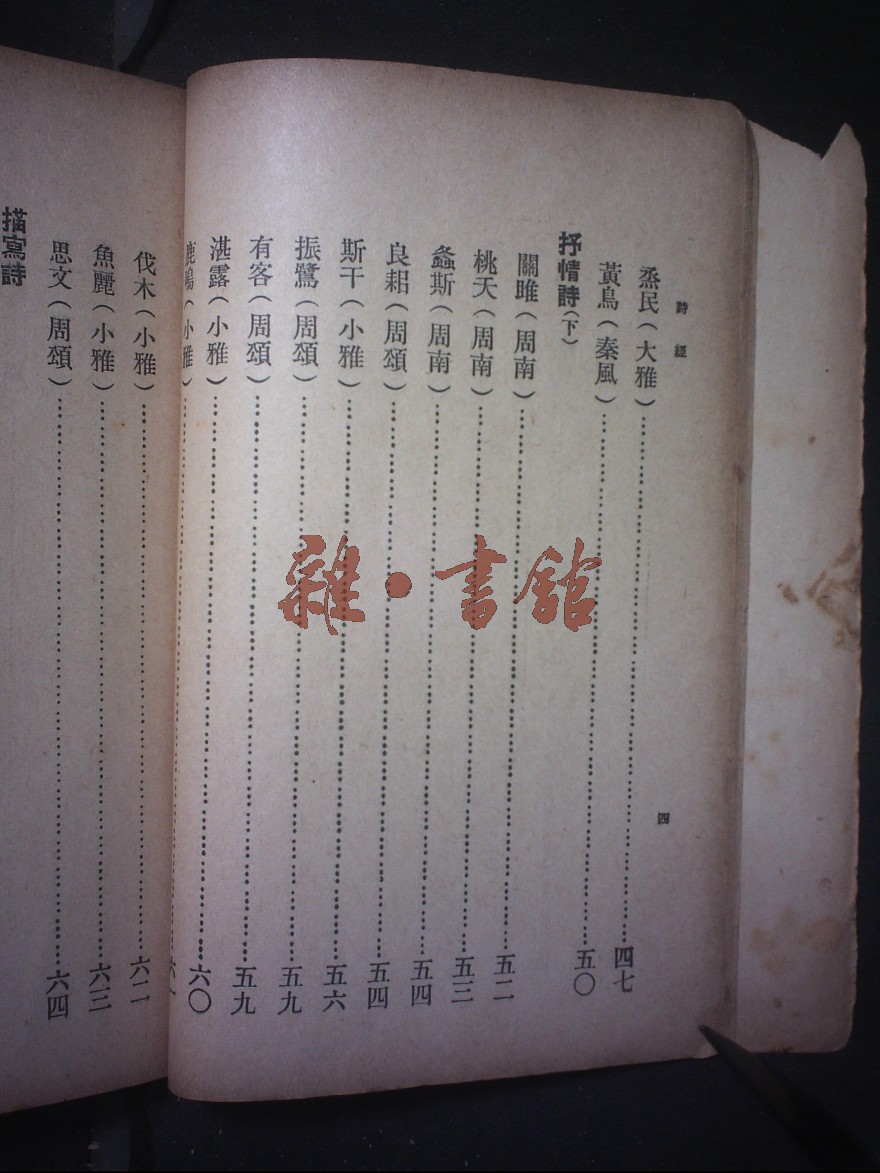 詩經
四
烝民(大雅)……四七
黃鳥(秦風)……五〇
抒情詩(下)
關雎(周南)……五二
桃夭(周南)……五三
螽斯(周南)……五四
良耜(周頌)……五四
斯干(小雅)……五六
振鷺(周頌)……五九
有客(周頌)……五九
湛露(小雅)……六〇
鹿鳴(小雅)……六一
伐木(小雅)……六二
魚麗(小雅)……六三
思文(周頌)……六四
描寫詩
雜·書館